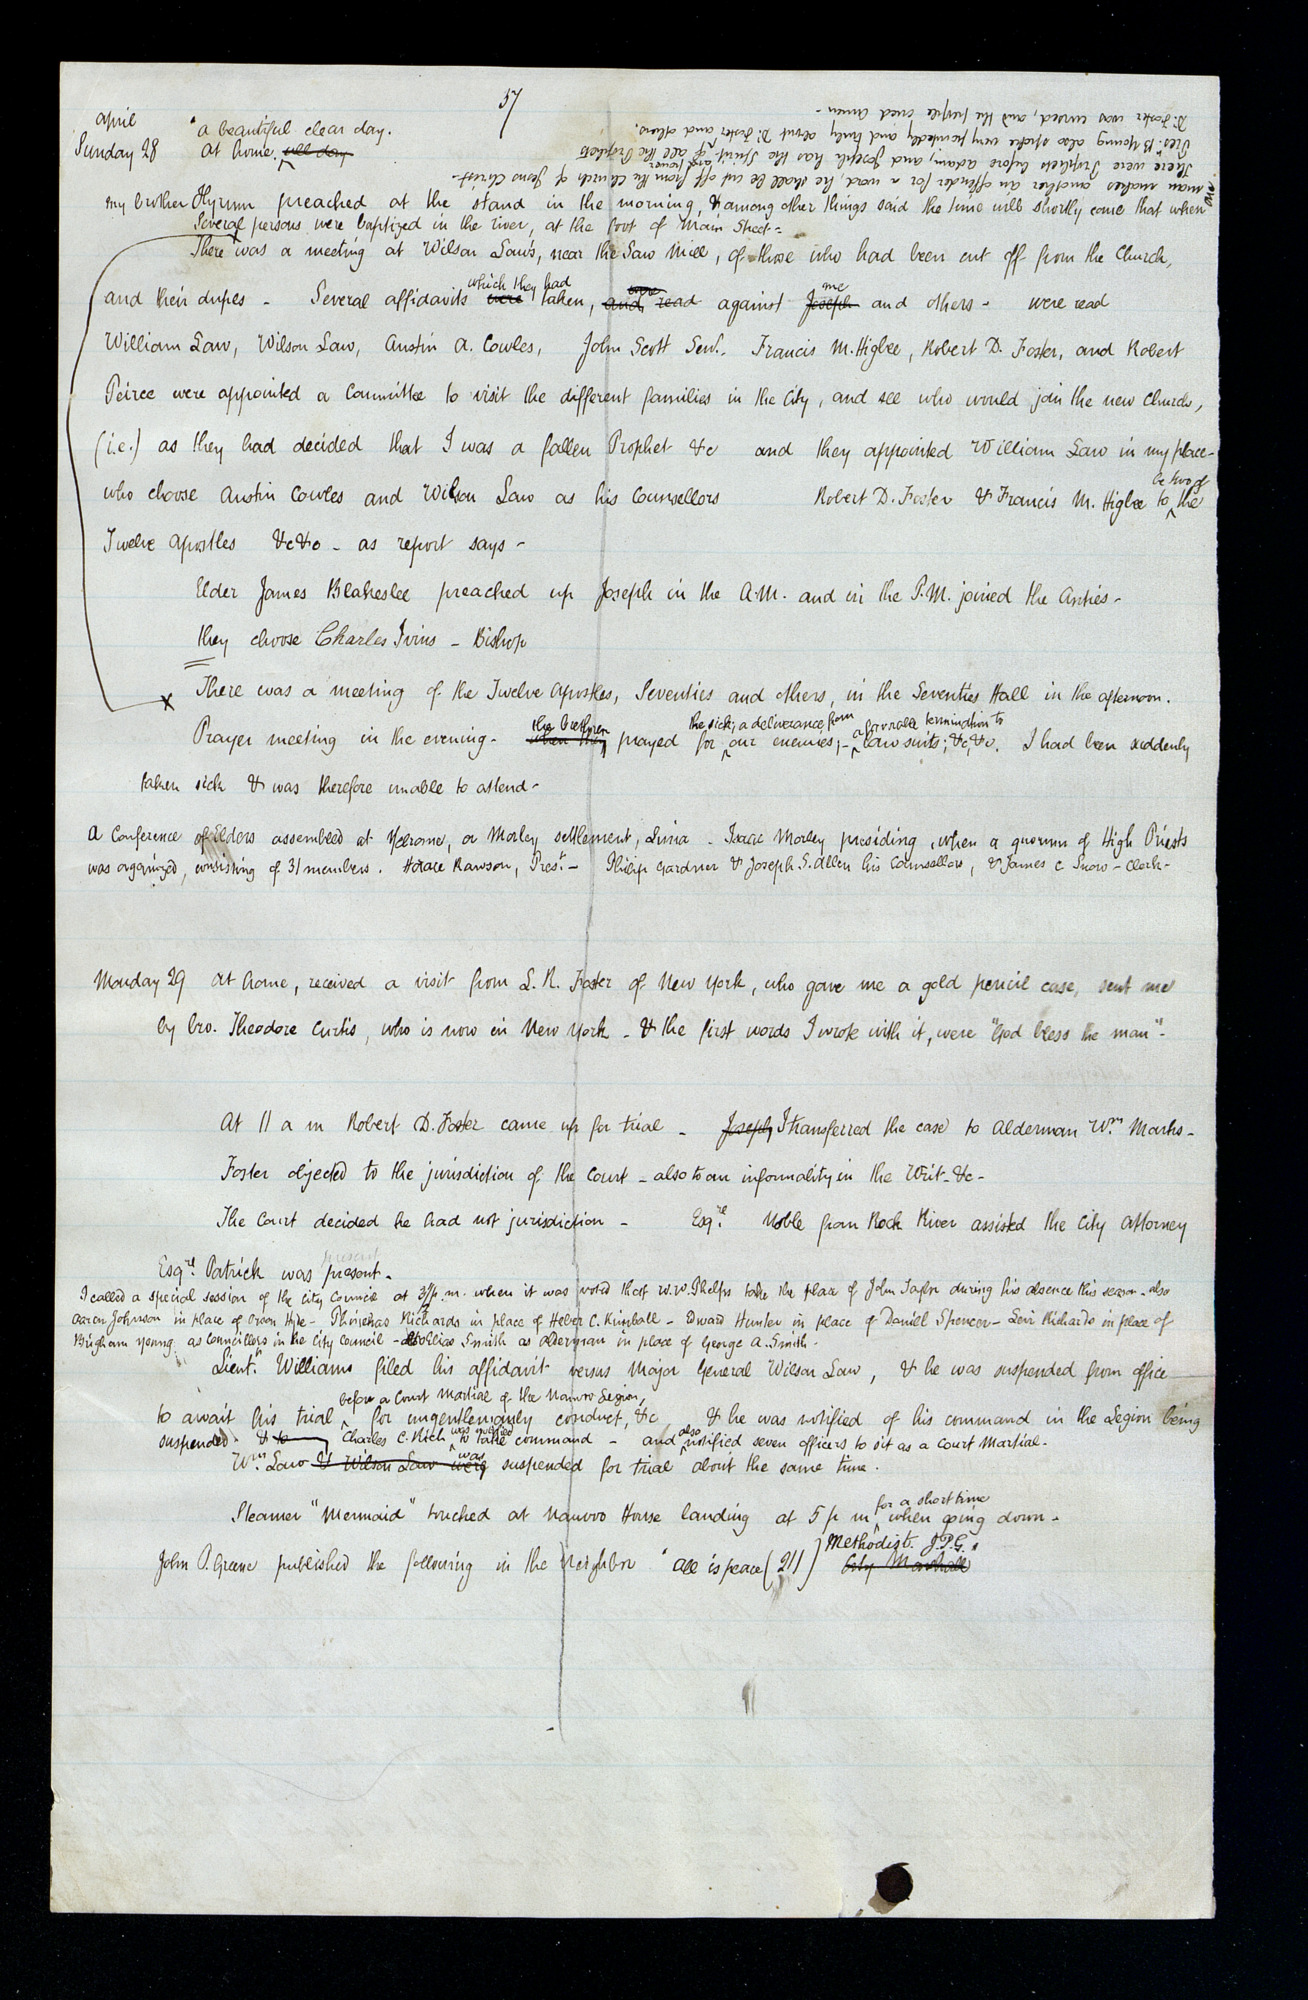 57
April
Sunday 28
a beautiful clear day.
at home, all day
my brother Hyrum preached at the stand in the morning, & among other things said the time will shortly come that when any
man makes another an offender for a word, he shall be cut off from the Church of Jesus Christ-
There were Prophets before Adam, and Joseph has the Spirit and power of all the Prophets
Prest. B Young also spoke very pointedly and truly about Dr. Foster and others.
Dr. Foster was cursed, and the people cried amen -
Several persons were baptized in the river, at the foot of Main Street -
There was a meeting at Wilson Law's, near the Saw Mill, of those who had been cut off from the Church,
and their dupes - Several affidavits which they had were taken, and were read against Joseph me and others - were read
William Law, Wilson Law, Austin A. Cowles, John Scott Senr. Francis M. Higbee, Robert D. Foster, and Robert
Peirce were appointed a Committee to visit the different families in the City, and see who would join the new Church,
(i.e.) as they had decided that I was a fallen Prophet &c and they appointed William Law in my place-
who choose Austin Cowles and Wilson Law as his Counsellors Robert D. Foster & Francis M. Higbee to be two of the
Twelve Apostles &c &c - as report says -
Elder James Blakeslee preached up Joseph in the A.M. and in the P.M. joined the Anties -
they choose Charles Ivins - Bishop
x There was a meeting of the Twelve Apostles, Seventies and others, in the Seventies Hall in the afternoon.
Prayer meeting in the evening - when they the brethren prayed for the sick; a deliverance from our enemies; - a favorable termination to law suits; &c, &c. I had been suddenly
taken sick & was therefore unable to attend -
A Conference of Elders assembled at Yelrome, or Morley settlement, Lima. Isaac Morley presiding, when a quorum of High Priests
was organized, consisting of 31 members. Horace Rawson, Prest. - Philip Gardner & Joseph S. Allen his Counsellors, & James C Snow - Clerk -
Monday 29 At home, received a visit from L. R. Foster of New York, who gave me a gold pencil case, sent me
by bro. Theodore Curtis, who is now in New York - & the first words I wrote with it, were "God bless the man" -
At 11 a m Robert D. Foster came up for trial - Joseph I transferred the case to Alderman Wm. Marks -
Foster objected to the jurisdiction of the Court - also to an informality in the Writ - &c -
The Court decided he had not jurisdiction - Esqre. Noble from Rock River assisted the City Attorney
Esqre. Patrick was present -
I called a special session of the City Council at 3 p.m. when it was voted that W. W. Phelps take the place of John Taylor during his absence this season - also
Aaron Johnson in place of Orson Hyde - Phinehas Richards in place of Heber C. Kimball - Edward Hunter in place of Daniel Spencer - Levi Richards in place of
Brigham Young as Councillors in the City Council - also Elias Smith as alderman in place of George A. Smith -
Lieut. Williams filed his affidavit versus Major General Wilson Law, & he was suspended from office
to await his trial before a Court Martial of the Nauvoo Legion, for ungentlemanly conduct, &c & he was notified of his command in the Legion being
suspended & to Charles C. Rich was notified to take command - and also notified seven officers to sit as a Court Martial.
Wm. Law & Wilson Law were was suspended for trial about the same time.
Steamer "Mermaid" touched at Nauvoo House landing at 5 p m for a short time when going down -
John P. Greene published the following in the Neighbor "All is peace (211) Methodist. J.P.G."
City Marshall